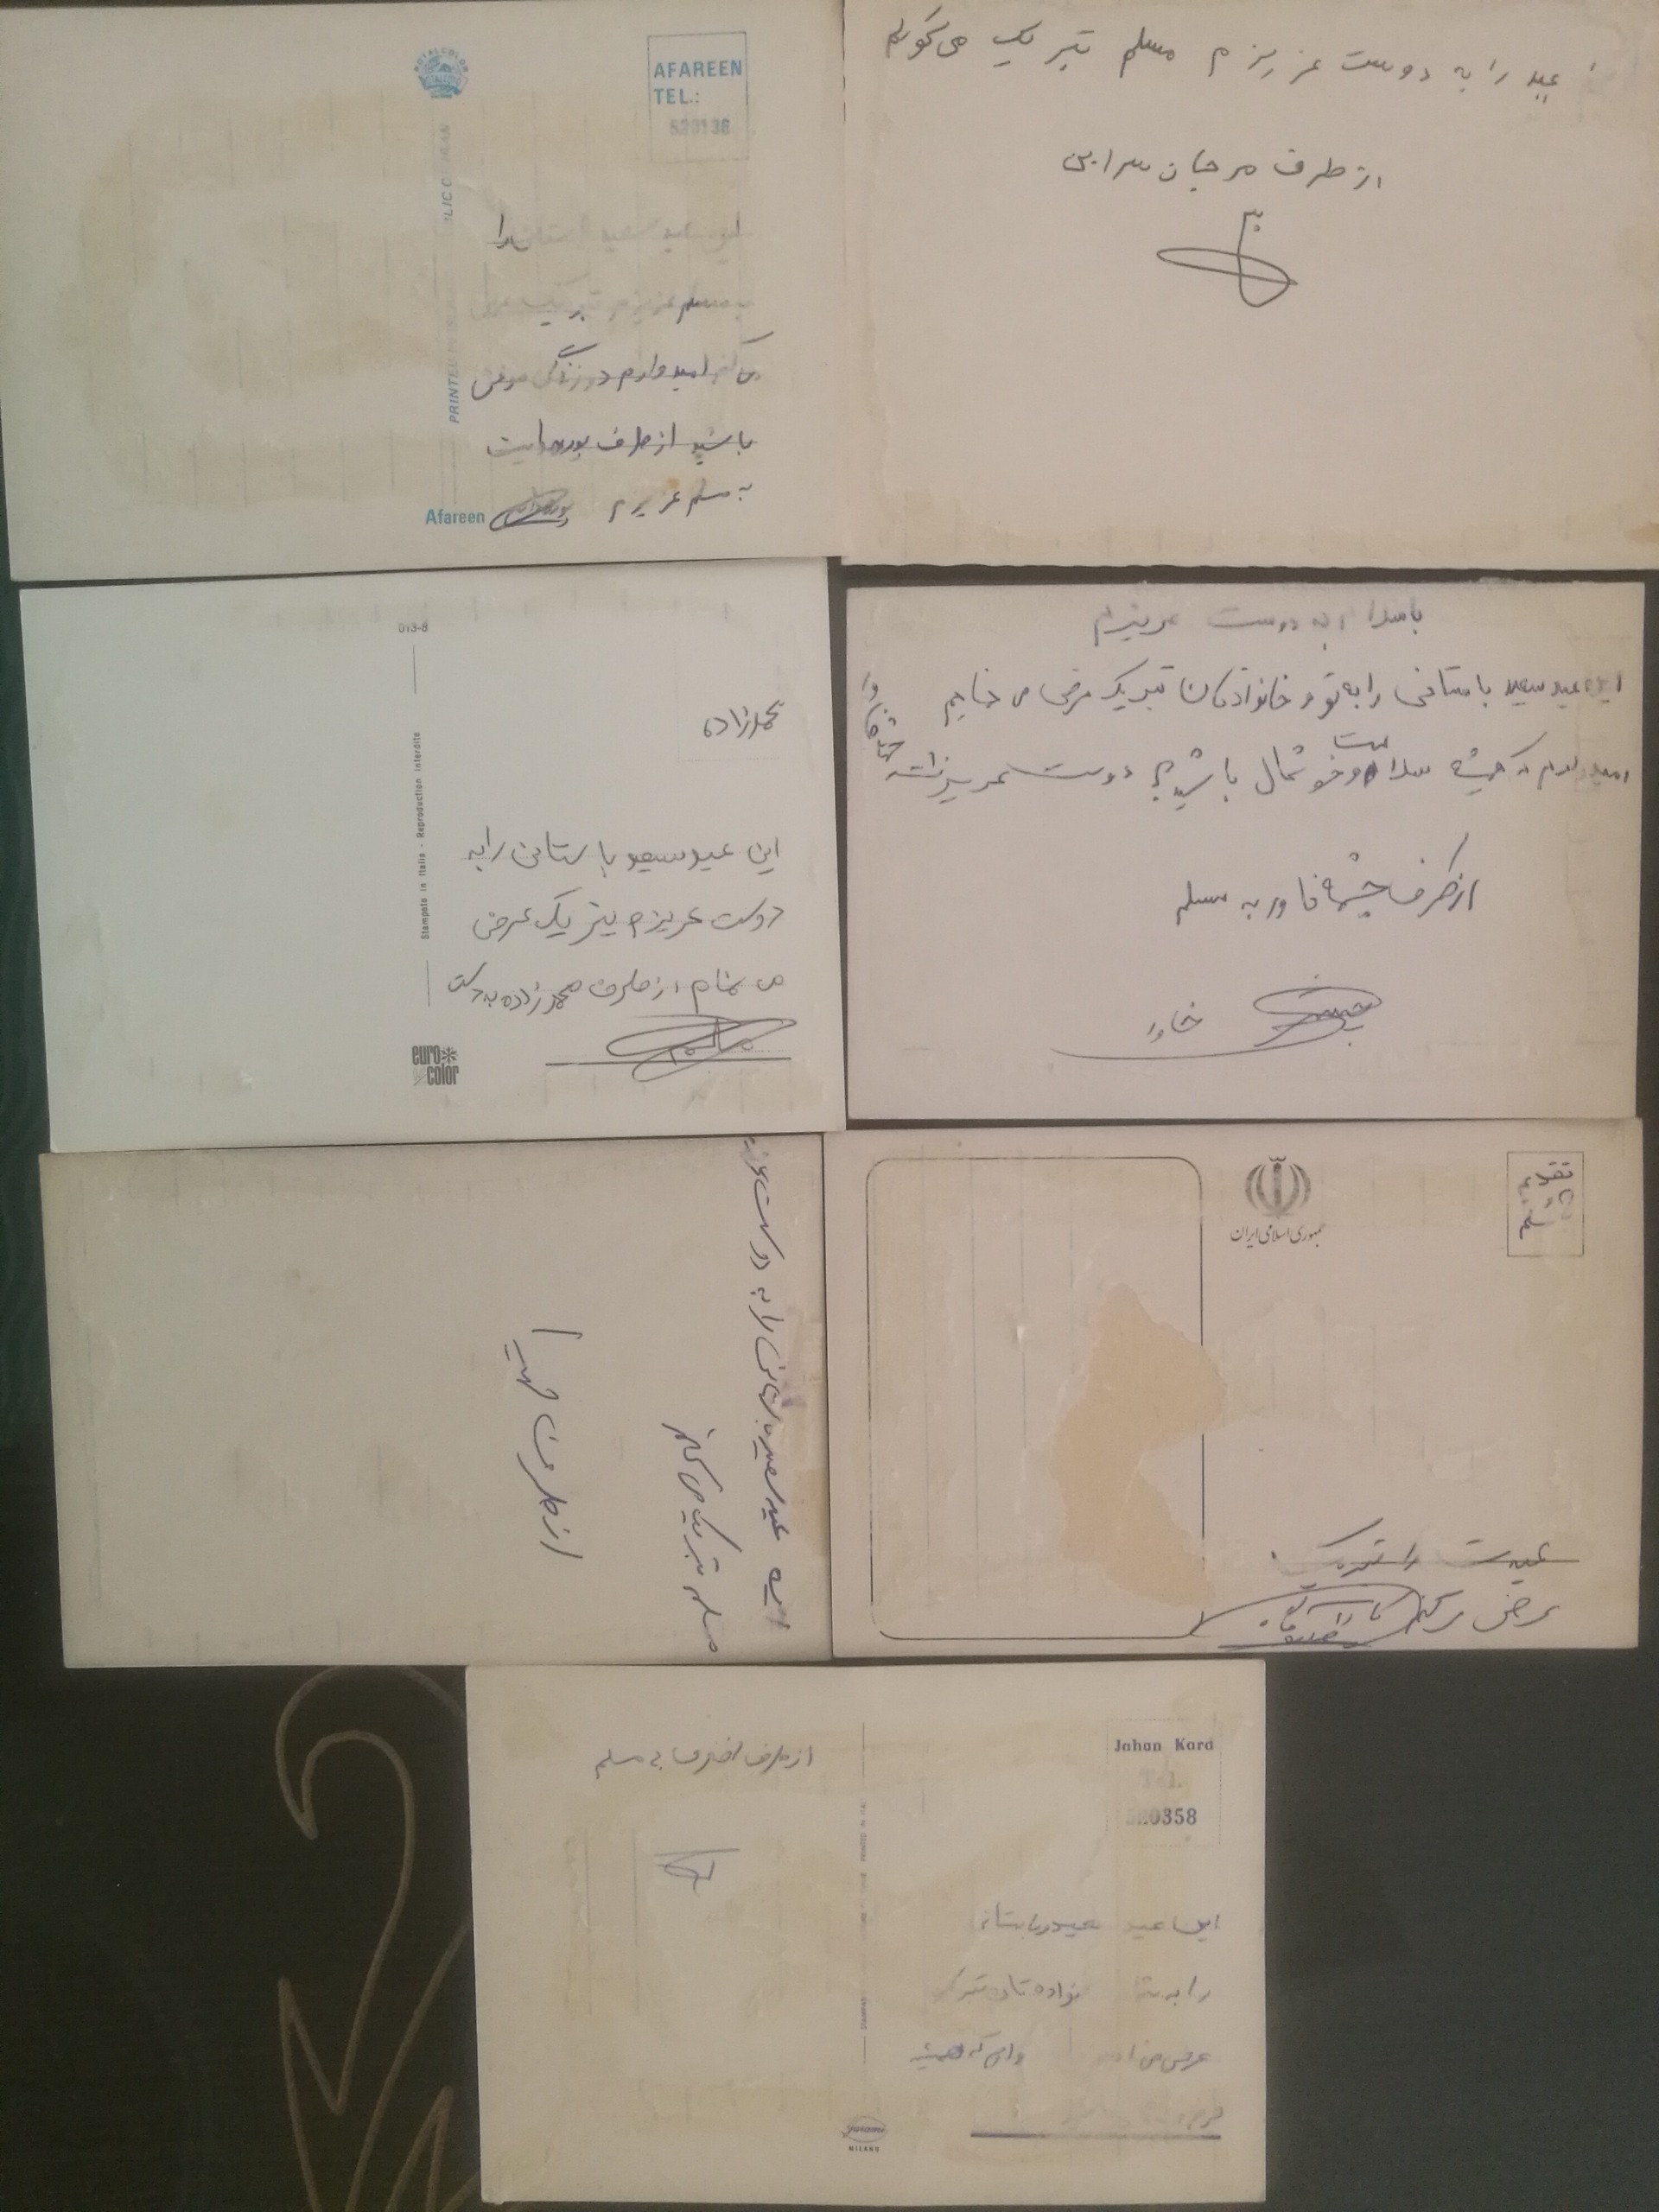 AFAREEN
TEL.:
520136
این عید سعید باستان را
به مسلم عزیزم تبریک عرض
می‌کنم امیدوارم در زندگی موفق
باشید از طرف
به مسلم عزیزم
Afareen
عید را به دوست عزیزم مسلم تبریک می‌گویم
از طرف مرجان سرابی
013-8
Stampato in Italia - Reproduction interdite
محمدزاده
این عید سعید باستانی را به
دوست عزیزم تبریک عرض
می نمایم از طرف محمدزاده به دوست
euro color
با سلام به دوست عزیزم
این عید سعید باستانی را به تو و خانوادتان تبریک عرض می نمایم
امیدوارم که همیشه سلامت و خوشحال باشید دوست عزیزت
از طرف چشمه خاور به مسلم
خاور
این عید سعید باستانی را به دوست عزیزم
مسلم تبریک می کنم
از طرف
جمهوری اسلامی ایران
عیدت را تبریک
عرض می کنم
Jahan Kard
Tel.
520358
از طرف به مسلم
این عید سعید باستانی
را به نواده تان تبریک
عرض می که همیشه
MILANO